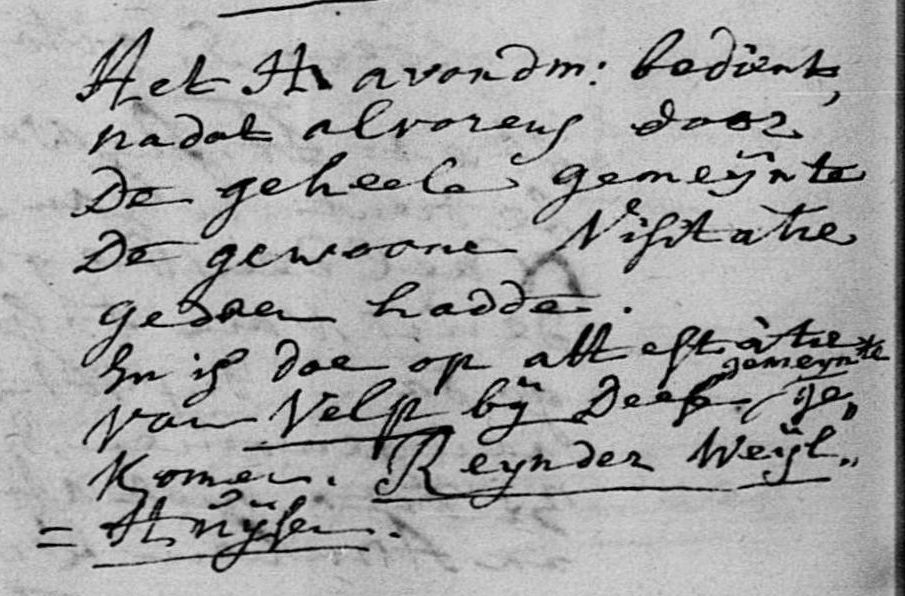 Het H avondm: bedient,
nadat alvorens door
De geheele gemeÿnte
De gewoone Visitatie
gedaen hadde.
En is doe op attestatie
gemeynte
van Velp bÿ Dese ge„
komen. Reynder Weÿl„
= Huÿsen.